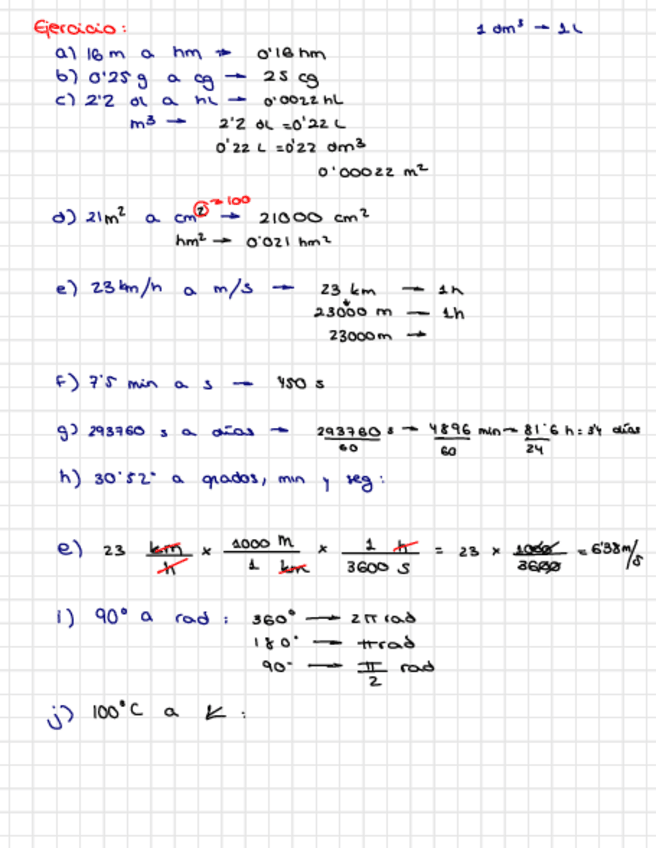 Ejercicio:
1 dm³ → 1L
a) 16 m a hm → 0'16 hm
b) 0'25 g a cg → 25 cg
c) 2'2 dL a hL → 0'0022 hL
m³ → 2'2 dL = 0'22 L
0'22 L = 0'22 dm³
0'00022 m²
d) 21m² a cm² → 100 → 21000 cm²
hm² → 0'021 hm²
e) 23 km/h a m/s → 23 km → 1h
23000 m → 1h
23000m →
f) 7'5 min a s → 450 s
g) 293760 s a días → 293760 s / 60 → 4896 / 60 min → 81'6 h / 24 = 3'4 días
h) 30'52° a grados, min y seg:
e) 23 km/h × 1000 m / 1 km × 1 h / 3600 s = 23 × 1000/3600 = 6'38 m/s
i) 90° a rad: 360° → 2π rad
180° → π rad
90° → π/2 rad
j) 100°C a K: